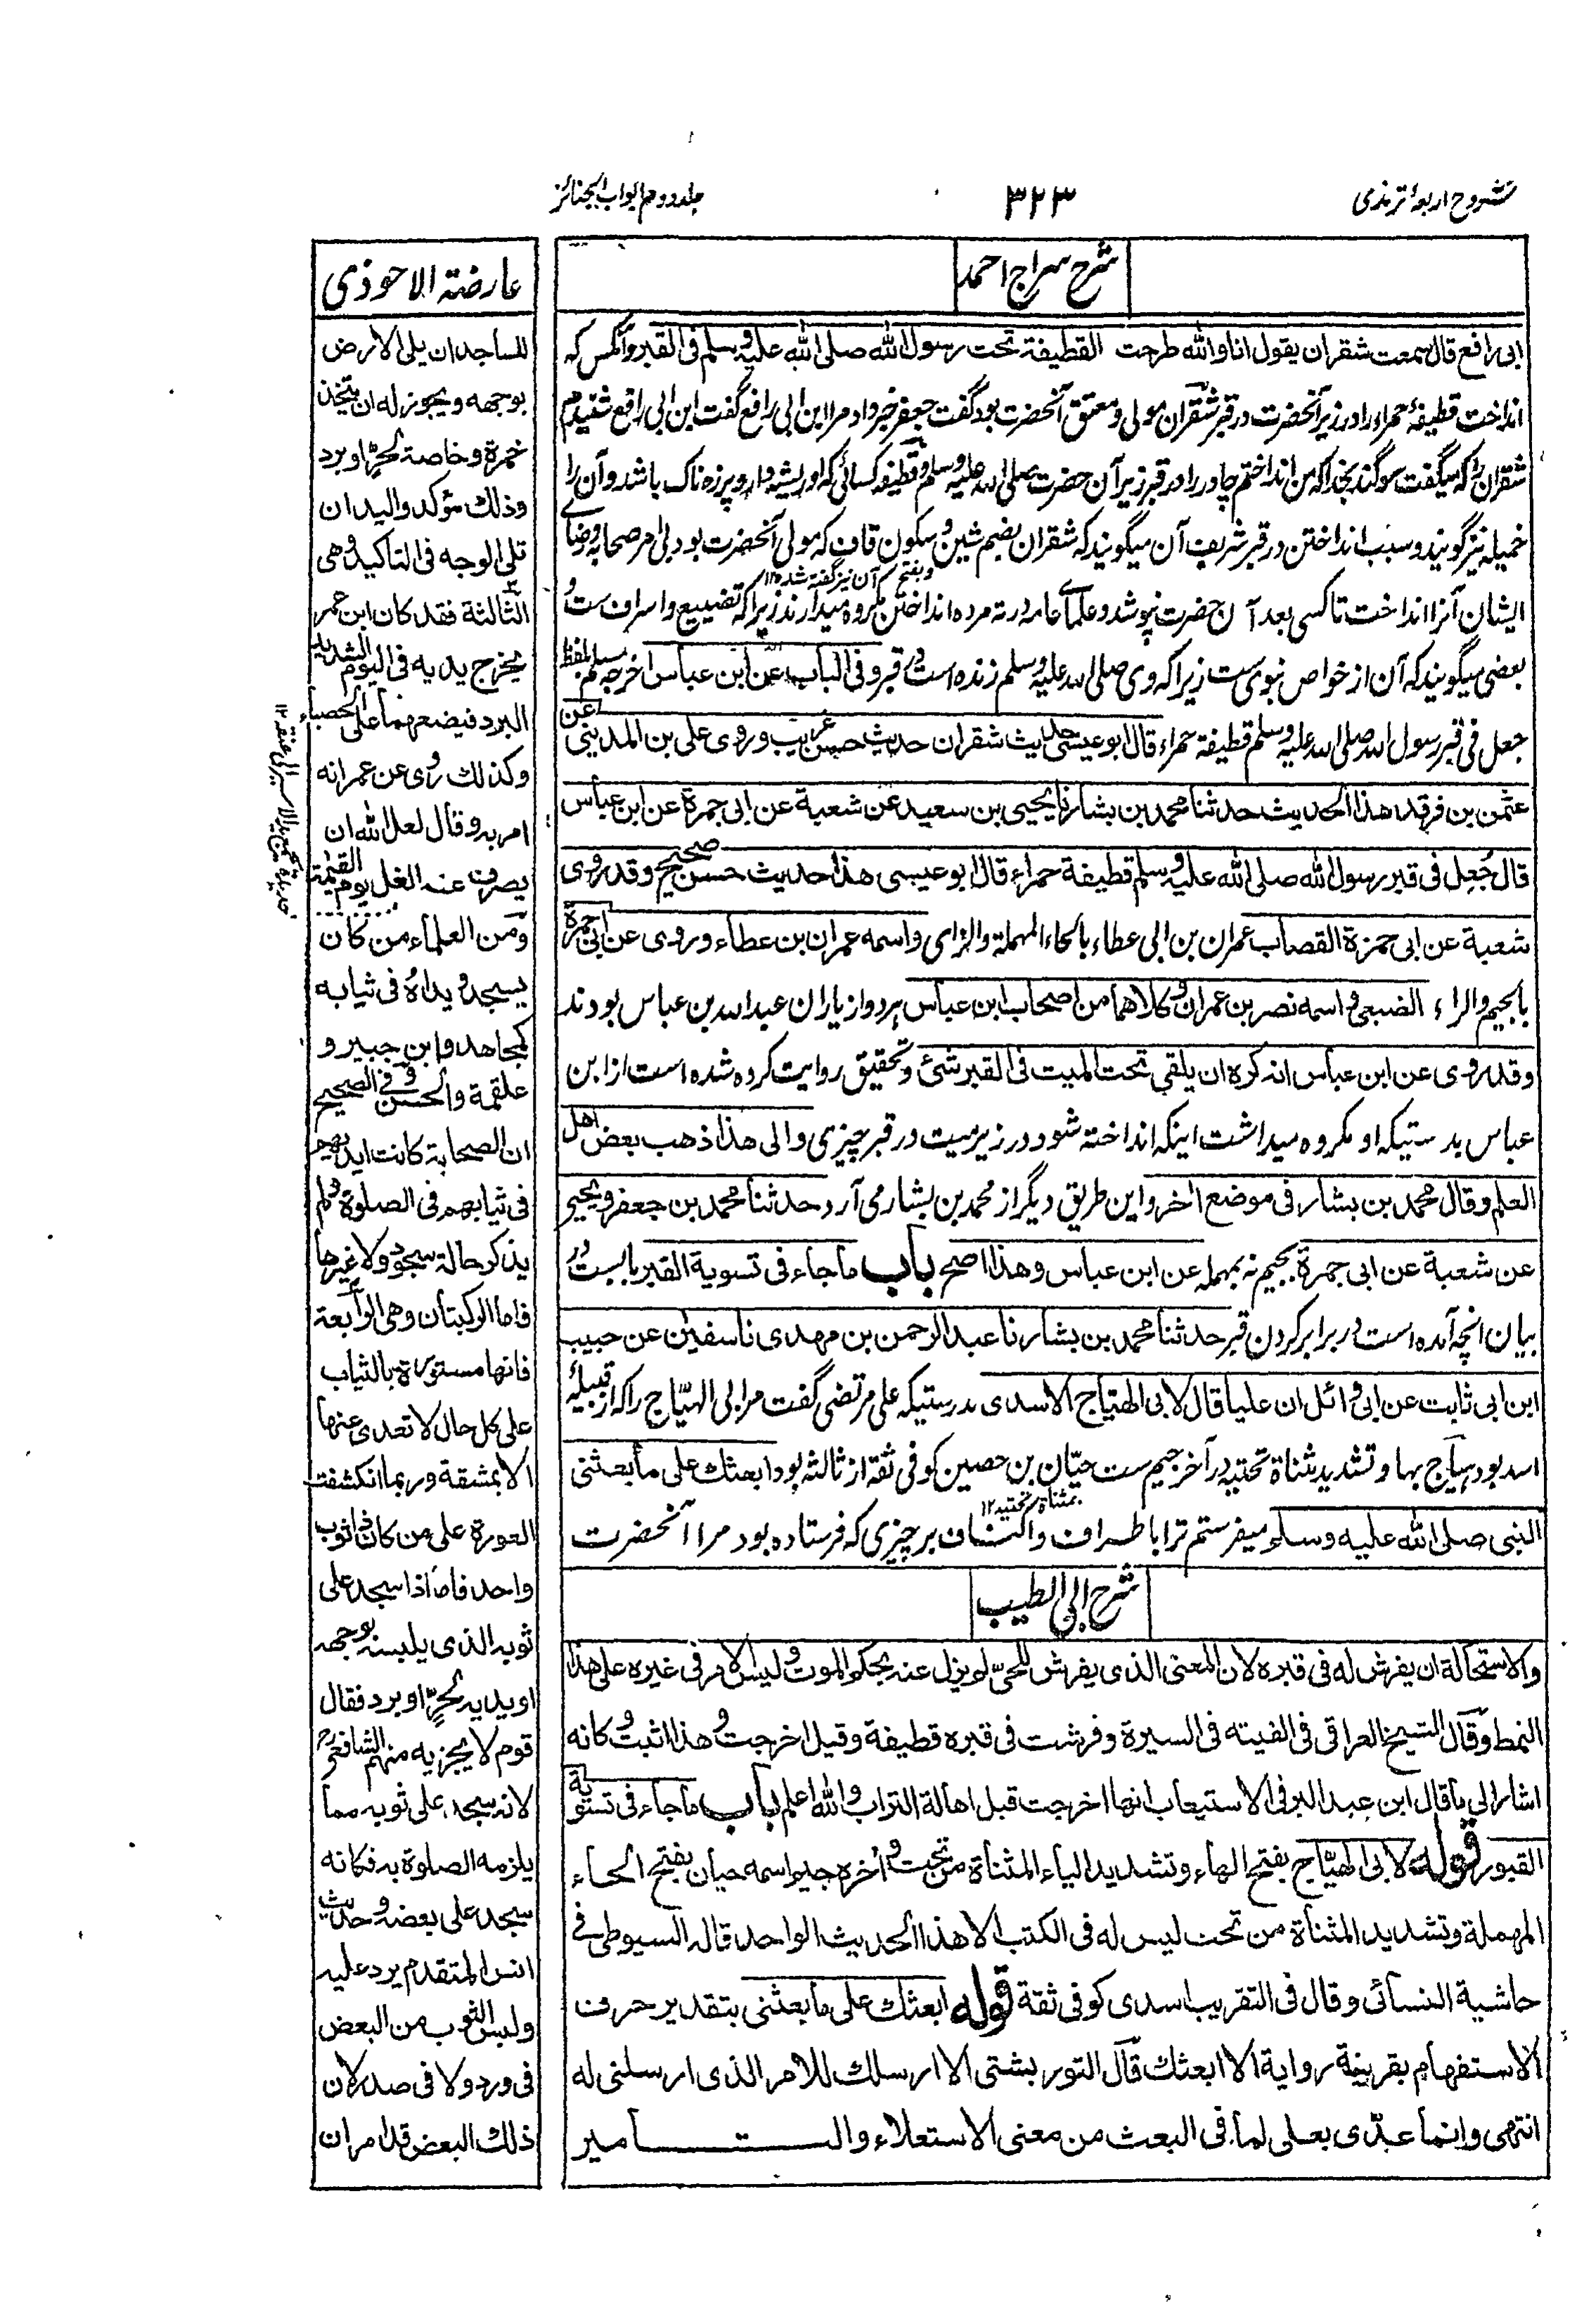 شروح اربعۂ ترمذی
۳۲۳
جلد دوم ابواب الجنائز
شرح سراج احمد
ابی رافع قال سمعت شقران یقول انا والله طرحت القطیفة تحت رسول الله صلی الله علیہ وسلم فی القبر وآنکس کہ
انداخت قطیفۂ حمراء را در زیر آنحضرت در قبر شقران مولی و معتق آنحضرت بود گفت جعفر خبر داد مرا ابن ابی رافع گفت ابن ابی رافع شنیدم
شقران را کہ میگفت سوگند بخدا کہ من انداختم چادر را در قبر زیر آن حضرت صلی الله علیہ وسلم و قطیفہ کسائی کہ او ریشہ دار و پرزہ ناک باشد و آن را
خمیلہ نیز گویند و سبب انداختن در قبر شریف آن میگویند کہ شقران بضم شین و سکون قاف کہ مولی آنحضرت بود بی امر صحابہ و رضای
و بفتح آن نیز گفتہ شد ۱۲
ایشان آنرا انداخت تا کسی بعد آن حضرت نپوشد و علمای عامہ در تہ مردہ انداختن مکروہ میدارند زیرا کہ تضییع و اسراف ست و
بعضی میگویند کہ آن از خواص نبوی ست زیرا کہ وی صلی الله علیہ وسلم زندہ است در قبر و فی الباب عن ابن عباس اخرجہ مسلم بلفظ
جعل فی قبر رسول الله صلی الله علیہ وسلم قطیفة حمراء قال ابو عیسی حدیث شقران حدیث حسن غریب وروی علی بن المدینی عن
عثمن بن فرقد هذا الحدیث حدثنا محمد بن بشار نا یحیی بن سعید عن شعبة عن ابی جمرة عن ابن عباس
قال جُعِل فی قبر رسول الله صلی الله علیہ وسلم قطیفة حمراء قال ابو عیسی هذا حدیث حسن صحیح وقد روی
شعبة عن ابی حمزة القصاب عمران بن ابی عطاء بالحاء المهملة والزای واسمه عمران بن عطاء وروی عن ابی جمرة
بالجیم والراء الضبعی واسمه نصر بن عمران وکلاهما من اصحاب ابن عباس ہر دو از یاران عبد الله بن عباس بودند
وقد روی عن ابن عباس انه کره ان یلقی تحت المیت فی القبر شئ و تحقیق روایت کردہ شدہ است از ابن
عباس بدرستیکہ او مکروہ میداشت اینکہ انداختہ شود در زیر میت در قبر چیزی والی هذا ذهب بعض اهل
العلم وقال محمد بن بشار فی موضع اخر و این طریق دیگر از محمد بن بشار می آرد حدثنا محمد بن جعفر و یحیی
عن شعبة عن ابی جمرة بجیم نہ بمہملہ عن ابن عباس وهذا اصح باب ما جاء فی تسویة القبر بابست در
بیان آنچہ آمدہ است در برابر کردن قبر حدثنا محمد بن بشار نا عبد الرحمن بن مهدی نا سفین عن حبیب
ابن ابی ثابت عن ابی وائل ان علیا قال لابی الهیّاج الاسدی بدرستیکہ علی مرتضی گفت مر ابی الہیّاج را کہ از قبیلۂ
اسد بود ہیاج بہا و تشدید مثناة تحتیہ در آخر جیم ست حیّان بن حصین کوفی ثقہ از ثالثہ بود ابعثك علی ما بعثنی
بمثناة تحتیہ ۱۲
النبی صلی الله علیہ وسلم میفرستم ترا باطراف و اکناف بر چیزی کہ فرستادہ بود مرا آنحضرت
شرح ابی الطیب
والاستحالة ان یفرش له فی قبره لان المعنی الذی یفرش للحیّ لم یزل عنه بحکم الموت ولیس الامر فی غیره علی هذا
النمط وقال الشیخ العراقی فی الفیته فی السیرة وفرشت فی قبره قطیفة وقیل اخرجت وهذا اثبت وکانه
اشار الی ما قال ابن عبد البر فی الاستیعاب انها اخرجت قبل اهالة التراب والله اعلم باب ما جاء فی تسویة
القبور قوله لابی الهیّاج بفتح الهاء وتشدید الیاء المثناة من تحت واخره جیم اسمه حیان بفتح الحاء
المهملة وتشدید المثناة من تحت لیس له فی الکتب الا هذا الحدیث الواحد قاله السیوطی فی
حاشیة النسائی وقال فی التقریب اسدی کوفی ثقة قوله ابعثك علی ما بعثنی بتقدیر حرف
الاستفهام بقرینة روایة الا ابعثك قال التوربشتی الا ارسلك للامر الذی ارسلنی له
انتهی وانما عدّی بعلی لما فی البعث من معنی الاستعلاء والتامیر
عارضة الاحوذی
للساجد ان یلی الارض
بوجهه ویجوز له ان یتخذ
خمرة وخاصة لحرّ او برد
وذلك مؤکد والیدان
تلی الوجه فی التاکید وهی
الثالثة فقد کان ابن عمر
یخرج یدیه فی الیوم الشدید
البرد فیضعهما علی الحصباء
وکذلك روی عن عمر انه
امر به وقال لعل الله ان
یصرف عنه الغل یوم القیمة
ومن العلماء من کان
یسجد ویداه فی ثیابه
کمجاهد وابن جبیر و
علقمة والحسن وفی الصحیح
ان الصحابة کانت ایدیهم
فی ثیابهم فی الصلوة ولم
یذکر حالة سجود ولا غیرها
فاما الرکبتان وهی الرابعة
فانها مستورة بالثیاب
علی کل حال لا تعدی عنها
الا بمشقة وربما انکشفت
العورة علی من کان ذا ثوب
واحد فاما اذا سجد علی
ثوبه الذی یلبسه بوجهه
او یدیه لحرّ او برد فقال
قوم لا یجزیه منهم الشافعی
لانه سجد علی ثوبه مما
یلزمه الصلوة به فکانه
سجد علی بعضه وحدیث
انس المتقدم یرد علیه
ولیس الثوب من البعض
فی ورد ولا فی صدر لان
ذلك البعض قد امر ان